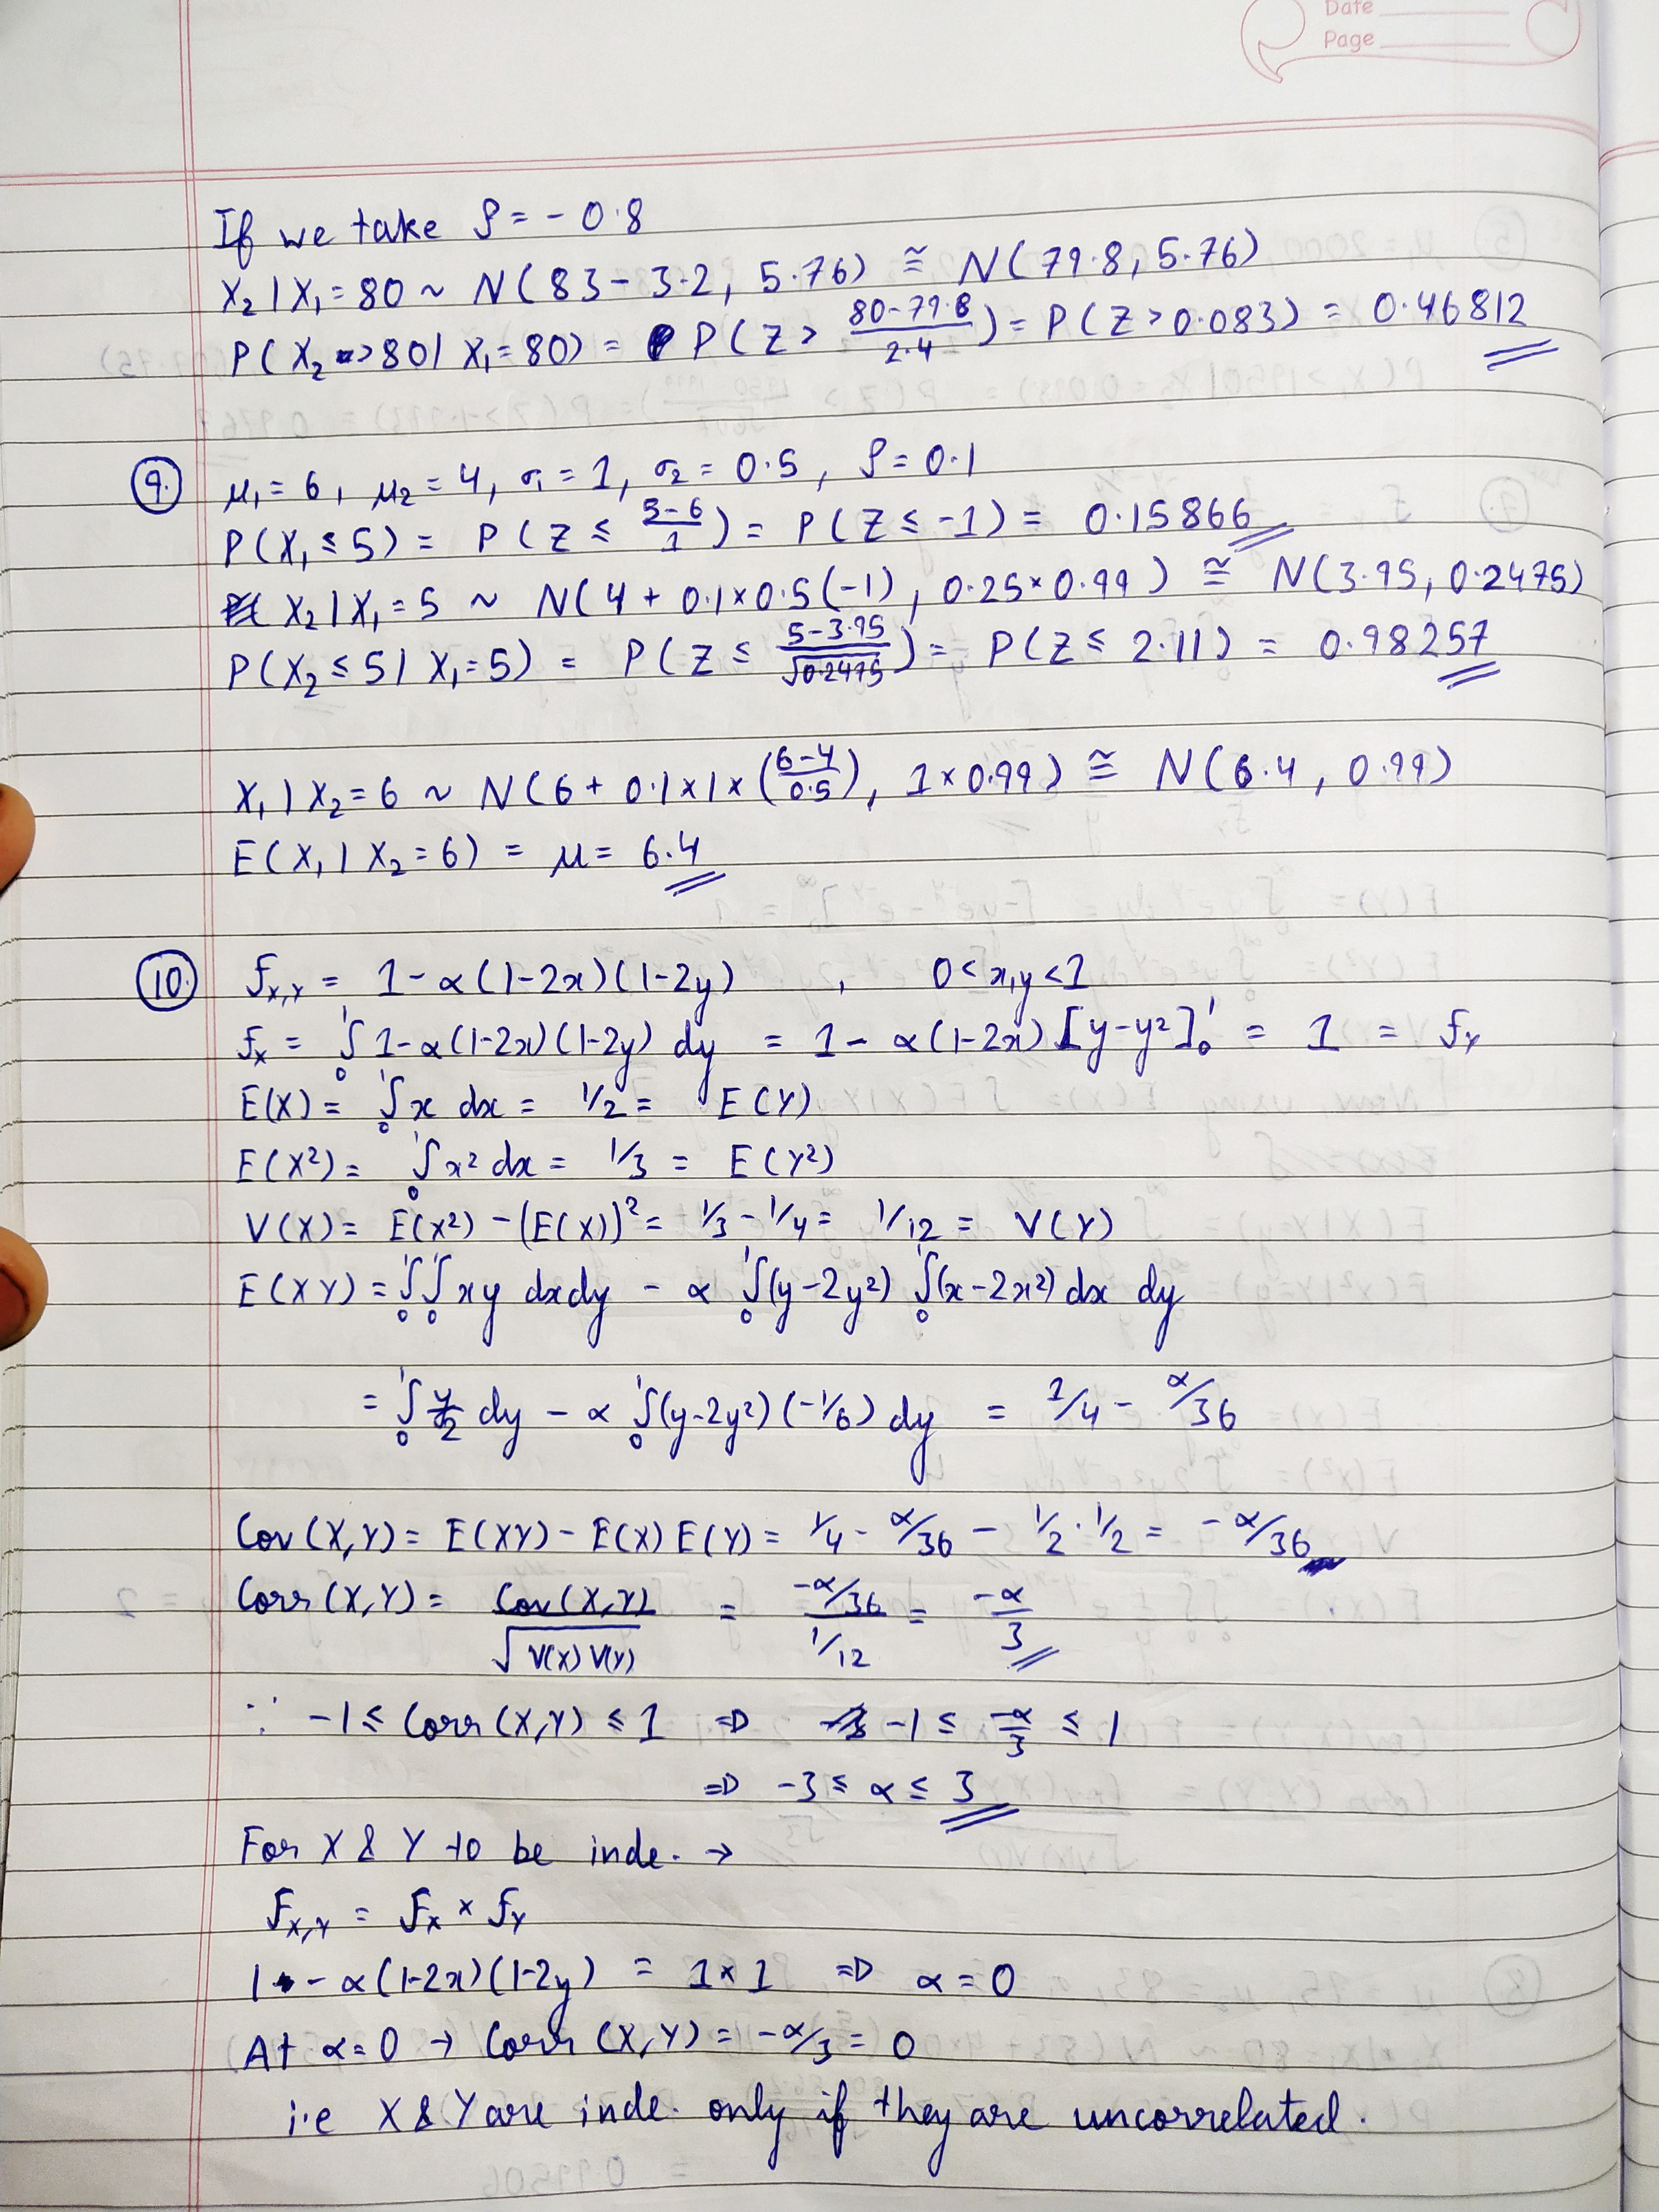 Date
Page
If we take ρ = - 0.8
X₂ | X₁ = 80 ~ N(83 - 3.2, 5.76) ≅ N(79.8, 5.76)
P(X₂ > 80 | X₁ = 80) = P(Z > (80-79.8)/2.4) = P(Z > 0.083) = 0.46812
9. μ₁ = 6, μ₂ = 4, σ₁ = 1, σ₂ = 0.5, ρ = 0.1
P(X₁ ≤ 5) = P(Z ≤ (5-6)/1) = P(Z ≤ -1) = 0.15866
X₂ | X₁ = 5 ~ N(4 + 0.1×0.5(-1), 0.25×0.99) ≅ N(3.95, 0.2475)
P(X₂ ≤ 5 | X₁ = 5) = P(Z ≤ (5-3.95)/√0.2475) = P(Z ≤ 2.11) = 0.98257
X₁ | X₂ = 6 ~ N(6 + 0.1×1×((6-4)/0.5), 1×0.99) ≅ N(6.4, 0.99)
E(X₁ | X₂ = 6) = μ = 6.4
10. f_{X,Y} = 1 - α(1-2x)(1-2y) , 0 < x,y < 1
f_X = ∫₀¹ 1 - α(1-2x)(1-2y) dy = 1 - α(1-2x)[y-y²]₀¹ = 1 = f_Y
E(X) = ∫₀¹ x dx = 1/2 = E(Y)
E(X²) = ∫₀¹ x² dx = 1/3 = E(Y²)
V(X) = E(X²) - (E(X))² = 1/3 - 1/4 = 1/12 = V(Y)
E(XY) = ∫₀¹∫₀¹ xy dxdy - α ∫₀¹(y-2y²) ∫₀¹(x-2x²) dx dy
= ∫₀¹ y/2 dy - α ∫₀¹(y-2y²)(-1/6) dy = 1/4 - α/36
Cov(X,Y) = E(XY) - E(X)E(Y) = 1/4 - α/36 - 1/2·1/2 = -α/36
Corr(X,Y) = Cov(X,Y)/√V(X)V(Y) = (-α/36)/(1/12) = -α/3
∵ -1 ≤ Corr(X,Y) ≤ 1 ⇒ -1 ≤ -α/3 ≤ 1
⇒ -3 ≤ α ≤ 3
For X & Y to be inde. →
f_{X,Y} = f_X × f_Y
1 - α(1-2x)(1-2y) = 1×1 ⇒ α = 0
At α = 0 → Corr (X,Y) = -α/3 = 0
i.e X & Y are inde. only if they are uncorrelated.